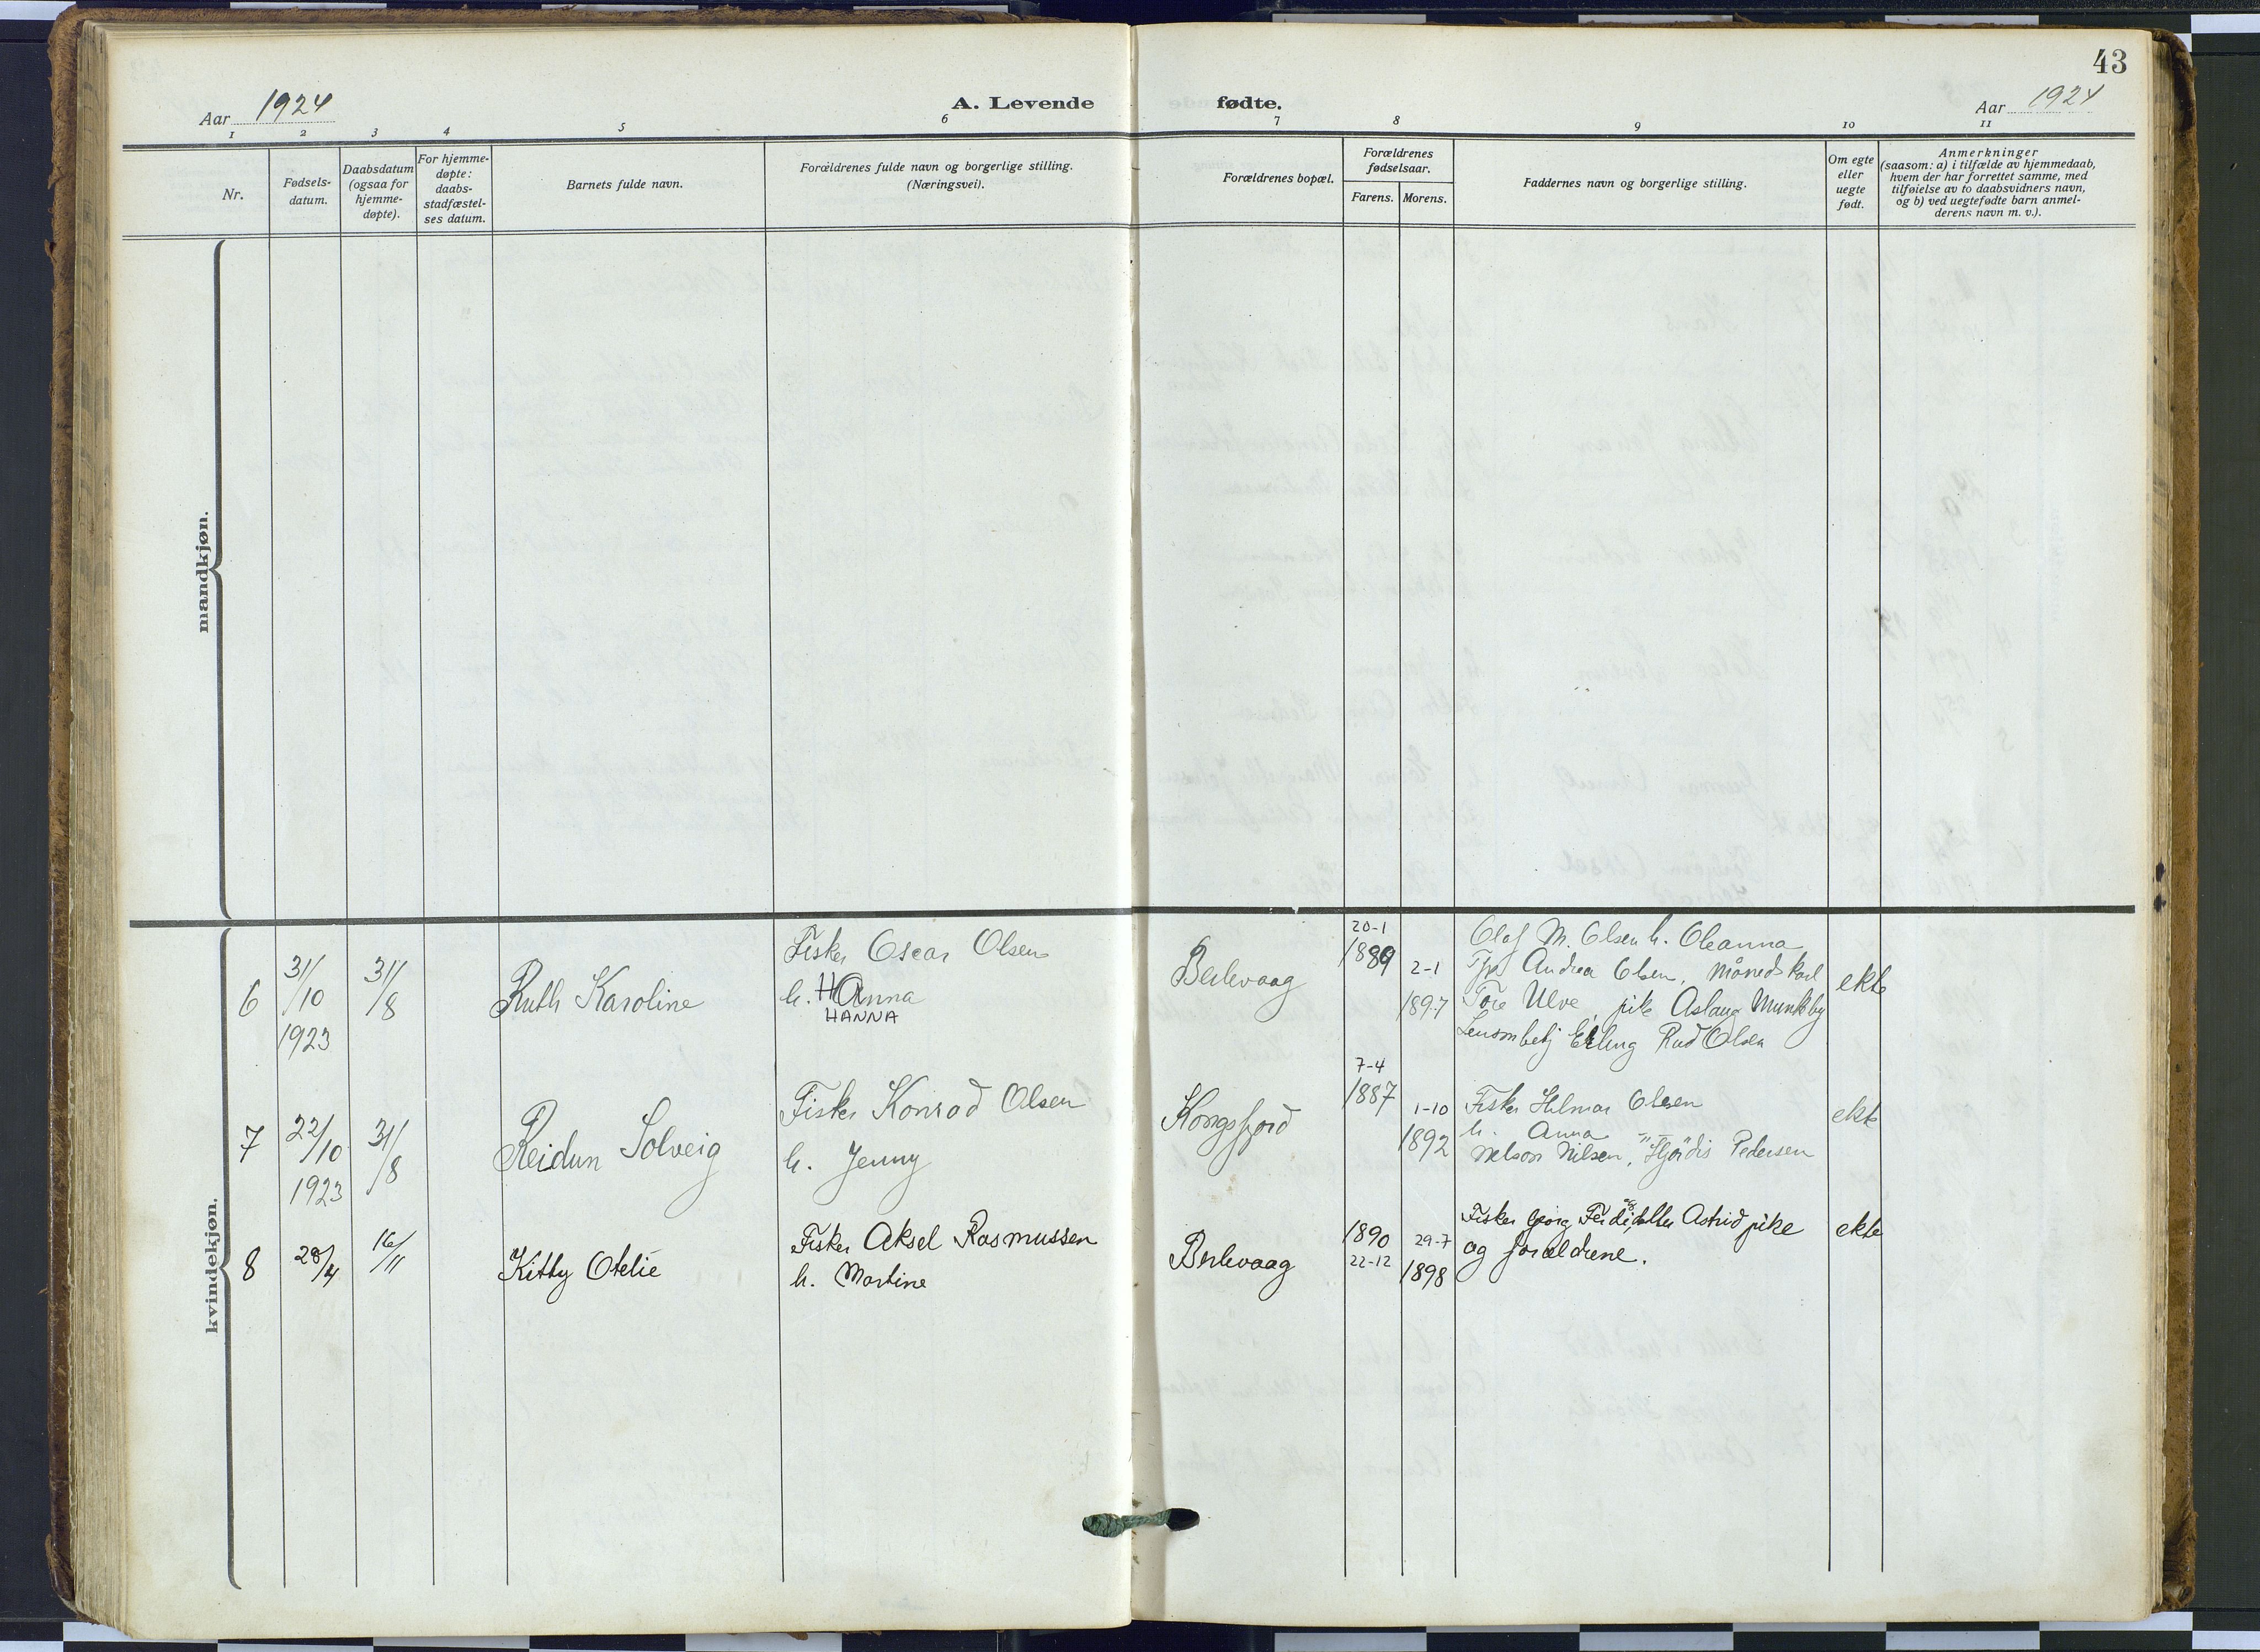 43
Aar 1924
A. Levende fødte.
Aar 1924
1 2 3 4 5 6 7 8 9 10 11
Nr.
Fødsels-
datum.
Daabsdatum
(ogsaa for
hjemme-
døpte).
For hjemme-
døpte:
daabs-
stadfæstel-
ses datum.
Barnets fulde navn.
Forældrenes fulde navn og borgerlige stilling.
(Næringsvei).
Forældrenes bopæl.
Forældrenes
fødselsaar.
Farens. Morens.
Faddernes navn og borgerlige stilling.
Om egte
eller
uegte
født.
Anmerkninger
(saasom: a) i tilfælde av hjemmedaab,
hvem der har forrettet samme, med
tilføielse av to daabsvidners navn,
og b) ved uegtefødte barn anmel-
derens navn m. v.).
mandkjøn.
kvindekjøn.
6
31/10
1923
31/8
Ruth Karoline
Fisker Oscar Olsen
h. Hanna
HANNA
Berlevaag
20-1
1889
2-1
1897
Olaf M. Olsen h. Oleanna
Andrea Olsen, månedskarl
Tore Ulve, pike Aslaug Munkeby
Erling Rud Olsen
ekte
7
22/10
1923
31/8
Reidun Solveig
Fisker Konrad Olsen
h. Jenny
Kongsfjord
7-4
1887
1-10
1892
Fisker Hilmar Olsen
h. Anna -"-
Nelson Nilsen, Hjørdis Pedersen
ekte
8
28/4
16/11
Kitty Otelie
Fisker Aksel Rasmussen
h. Martine
Berlevaag
1890
22-12
29-7
1898
Fisker Astrid pike
og forældrene.
ekte